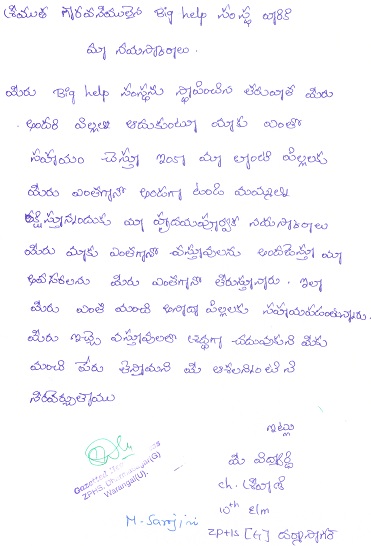 శ్రీయుత గౌరవనీయులైన Big help సంస్థ వారికి
మా నమస్కారాలు.
మీరు Big help సంస్థను స్థాపించిన తరువాత మీరు
అందరి పిల్లలు ఆదుకుంటూ మాకు ఎంతో
సహాయం చెస్తూ ఇంకా మా లాంటి పిల్లలకు
మీరు ఎంతగానో అండగా ఉండి మమ్మల్ని
రక్షిస్తున్నందుకు మా హృదయపూర్వక నమస్కారాలు
మీరు మాకు ఎంతగానో వస్తువులను అందచేస్తూ మా
అవసరాలను మీరు ఎంతగానో తీరుస్తున్నారు. ఇలా
మీరు ఎంతో మంది అనాధ పిల్లలకు సహాయపడుతున్నారు.
మీరు ఇచ్చె వస్తువులతో శ్రద్ధగా చదువుకుని మీకు
మంచి పేరు తెస్తామని మీ ఆశలన్నింటినీ
నేరవేర్చుతాము
ఇట్లు
మీ విద్యార్థి
ch. శ్రీవాణి
10th E/m
ZPHS [G] ధర్మసాగర్
Gazetted
ZPHS,
Warangal(U).
M. Sarojini